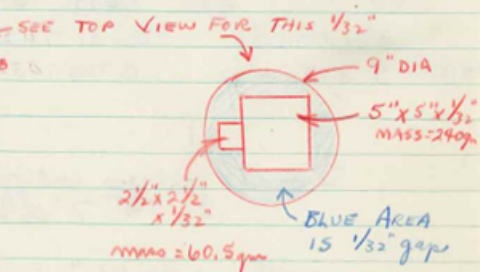 SEE TOP VIEW FOR THIS 1/32"
9" DIA
5" x 5" x 1/32"
MASS = 240gm
2 1/2" x 2 1/2"
x 1/32"
mass = 60.5gm
BLUE AREA
IS 1/32" gap